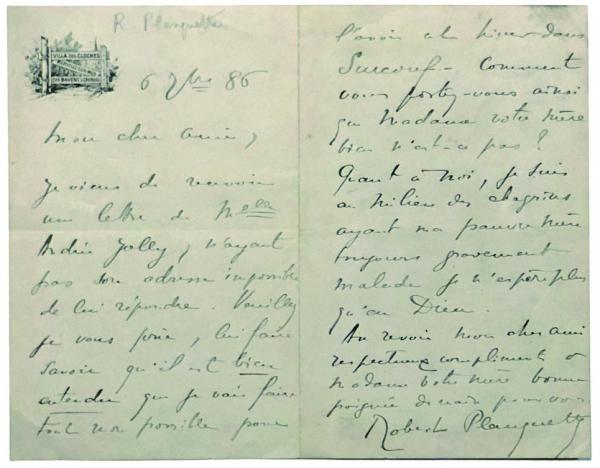 R. Planquette
VILLA DES CLOCHES
6 7bre 86
Mon cher ami,
Je viens de recevoir
une lettre de Melle
Andrée Jolly, n'ayant
pas son adresse impossible
de lui répondre. Veuillez
je vous prie, lui faire
savoir qu'il est bien
entendu que je vais faire
tout mon possible pour
l'avoir cet hiver dans
Surcouf - Comment
vous portez-vous ainsi
que Madame votre mère
bien n'est-ce pas?
Quant à moi, je suis
au milieu des chagrins
ayant ma pauvre mère
toujours gravement
malade je n'espère plus
qu'en Dieu.
Au revoir mon cher ami
respectueux compliments à
Madame votre mère bonne
poignée de main pour vous
Robert Planquette